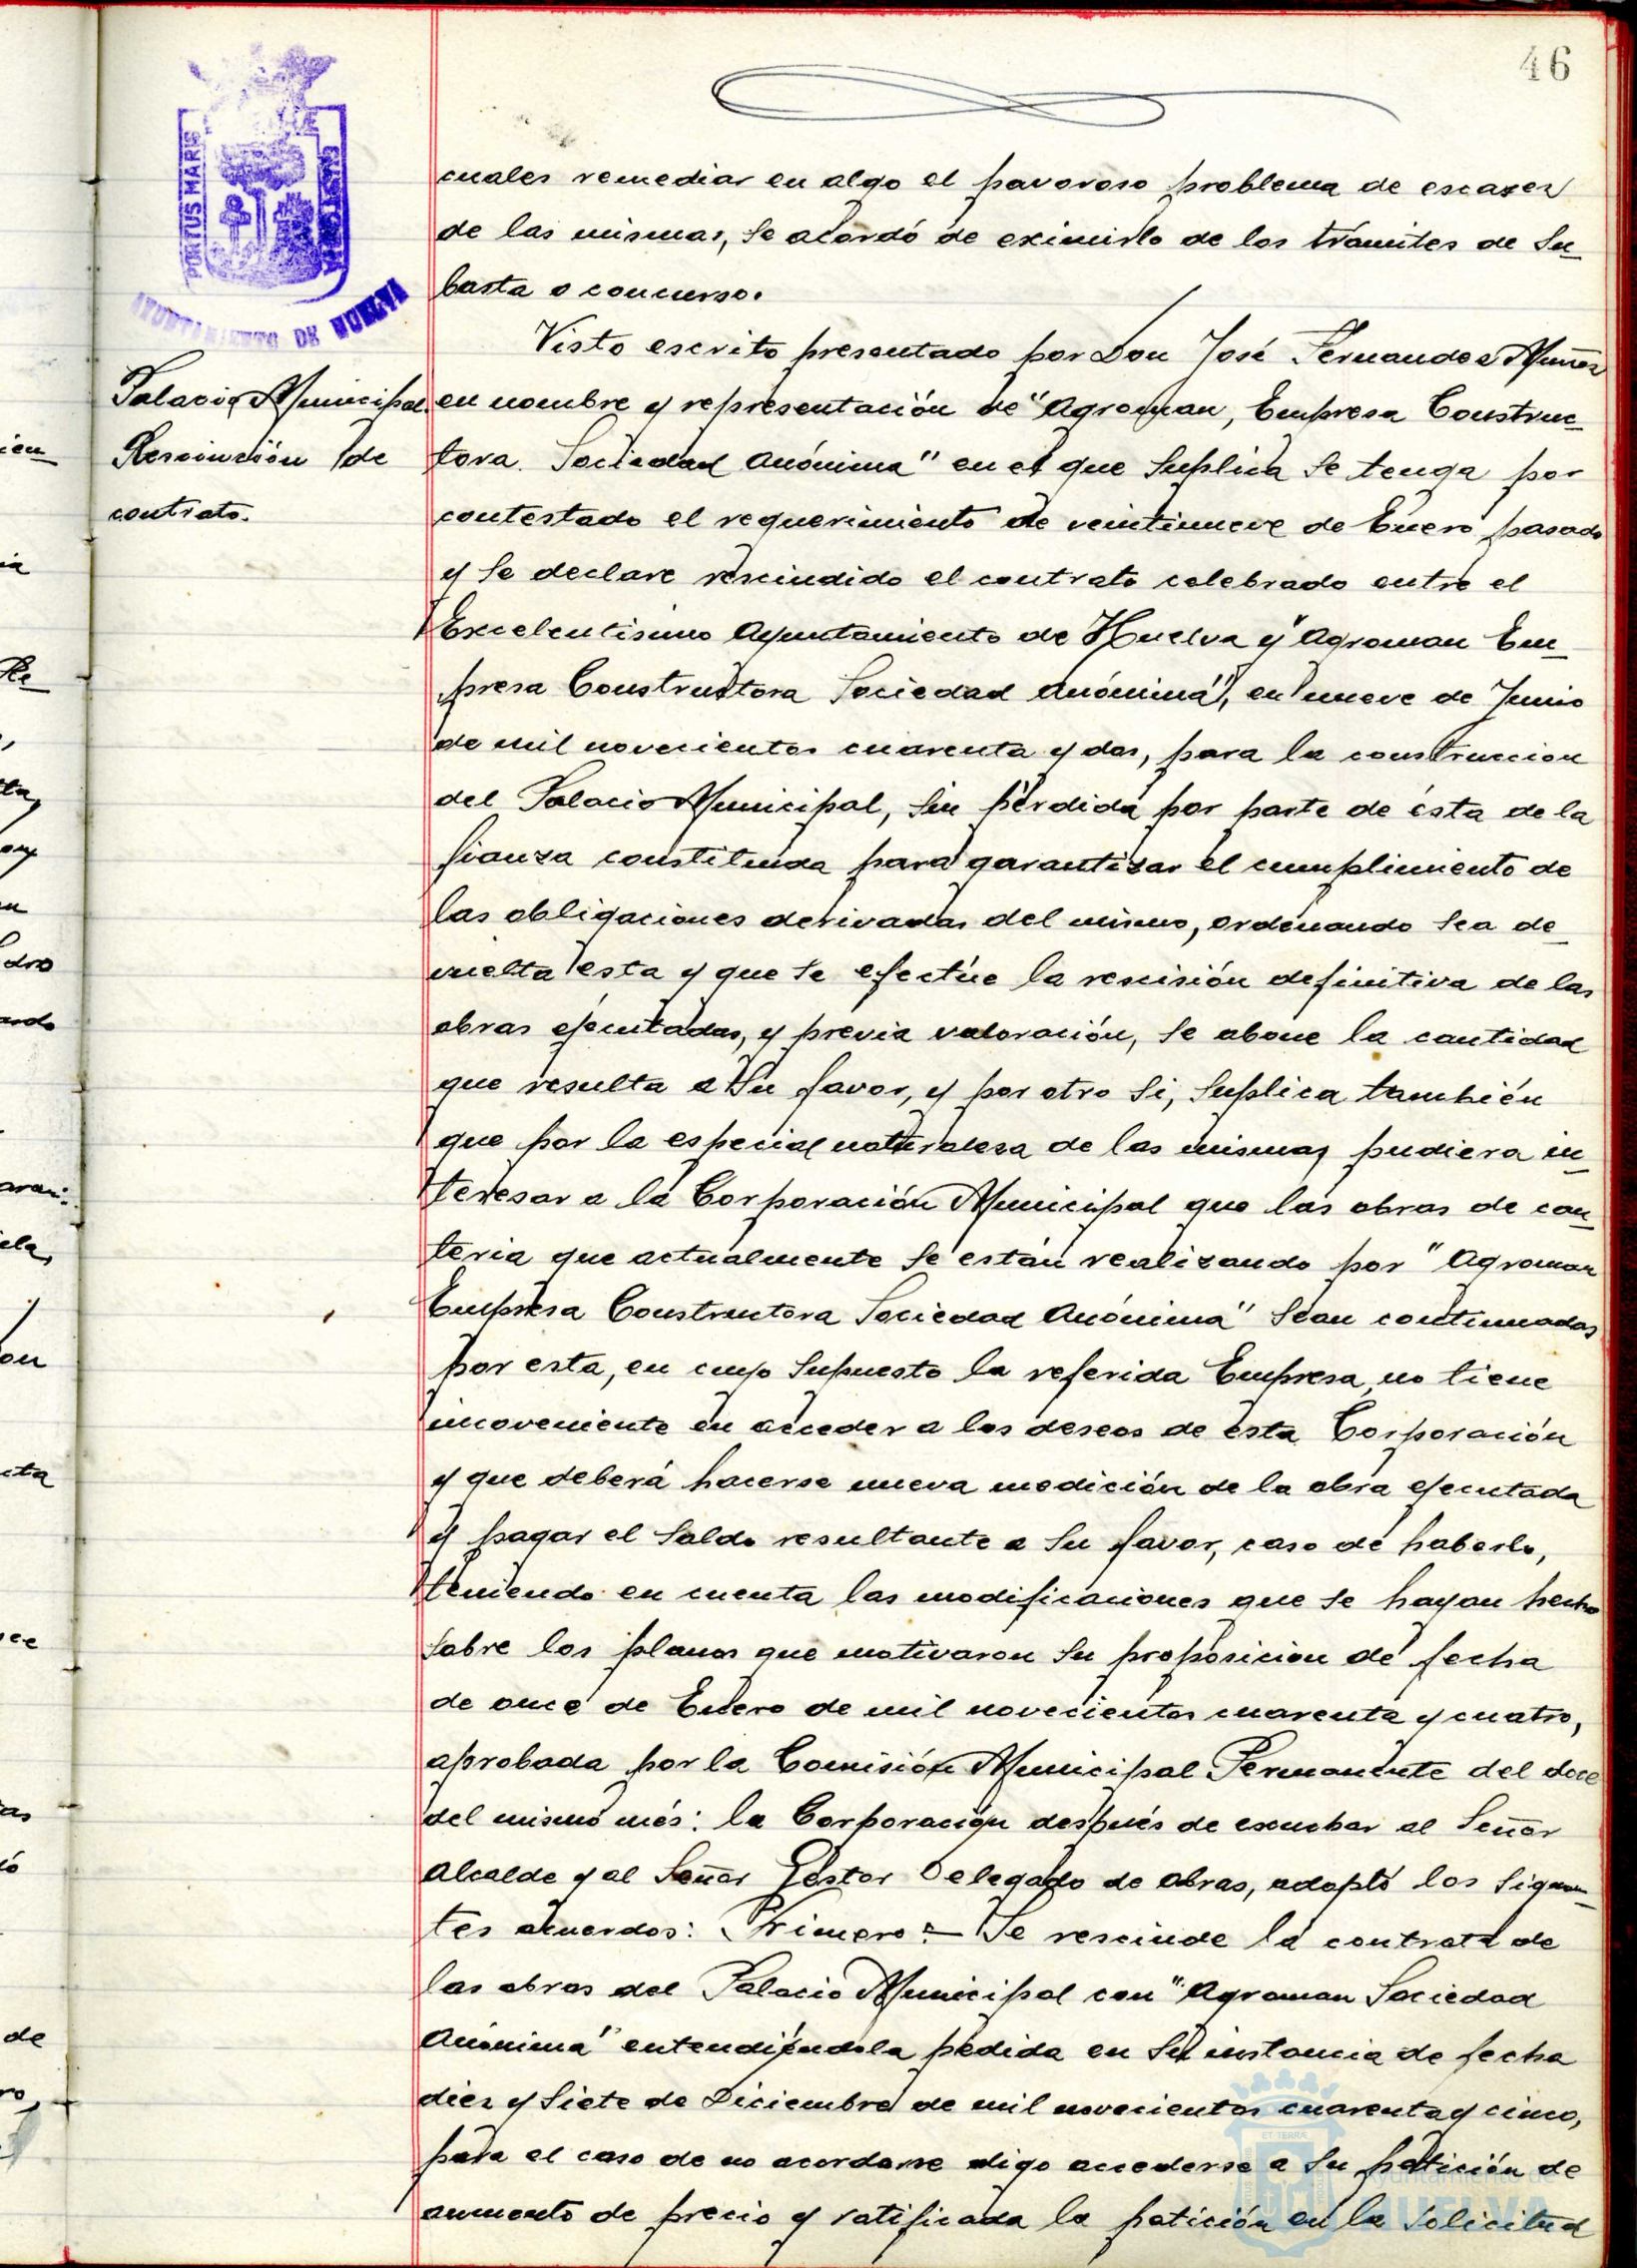 46
PORTUS MARIS
AYUNTAMIENTO DE HUELVA
cuales remediar en algo el pavoroso problema de escasez
de las mismas, se acordó de eximirlo de los trámites de su-
basta o concurso.
Visto escrito presentado por Don José Fernandez Muñoz
Palacio Municipal. en nombre y representación de "Agroman, Empresa Construc-
Rescinción de tora. Sociedad Anónima" en el que suplica se tenga por
contrato. contestado el requerimiento de veintinueve de Enero pasado
y se declare rescindido el contrato celebrado entre el
Excelentisimo Ayuntamiento de Huelva y "Agroman Em-
presa Constructora Sociedad Anónima", en nueve de Junio
de mil novecientos cuarenta y dos, para la construccion
del Palacio Municipal, sin pérdida por parte de ésta de la
fianza constituida para garantizar el cumplimiento de
las obligaciones derivadas del mismo, ordenando sea de-
vuelta esta y que se efectúe la rescisión definitiva de las
obras ejecutadas, y previa valoración, se abone la cantidad
que resulta a su favor, y por otro si, suplica también
que por la especial naturaleza de las mismas pudiera in-
teresar a la Corporación Municipal que las obras de can-
teria que actualmente se están realizando por "Agroman
Empresa Constructora Sociedad Anónima" sean continuadas
por esta, en cuyo supuesto la referida Empresa, no tiene
incoveniente en acceder a los deseos de esta Corporación
y que deberá hacerse nueva medición de la obra ejecutada
y pagar el saldo resultante a su favor, caso de haberlo,
teniendo en cuenta las modificaciones que se hayan hecho
sobre los planos que motivaron su proposicion de fecha
de once de Enero de mil novecientos cuarenta y cuatro,
aprobada por la Comisión Municipal Permanente del doce
del mismo més: la Corporación después de escuchar al Señor
Alcalde y al Señor Gestor Delegado de obras, adoptó los siguien-
tes acuerdos: Primero :- Se rescinde la contrata de
las obras del Palacio Municipal con "Agroman Sociedad
Anónima" entendiéndola pedida en su instancia de fecha
diez y siete de Diciembre de mil novecientos cuarenta y cinco,
para el caso de no acordarse digo accederse a su petición de
aumento de precio y ratificada la petición en la solicitud
HUELVA